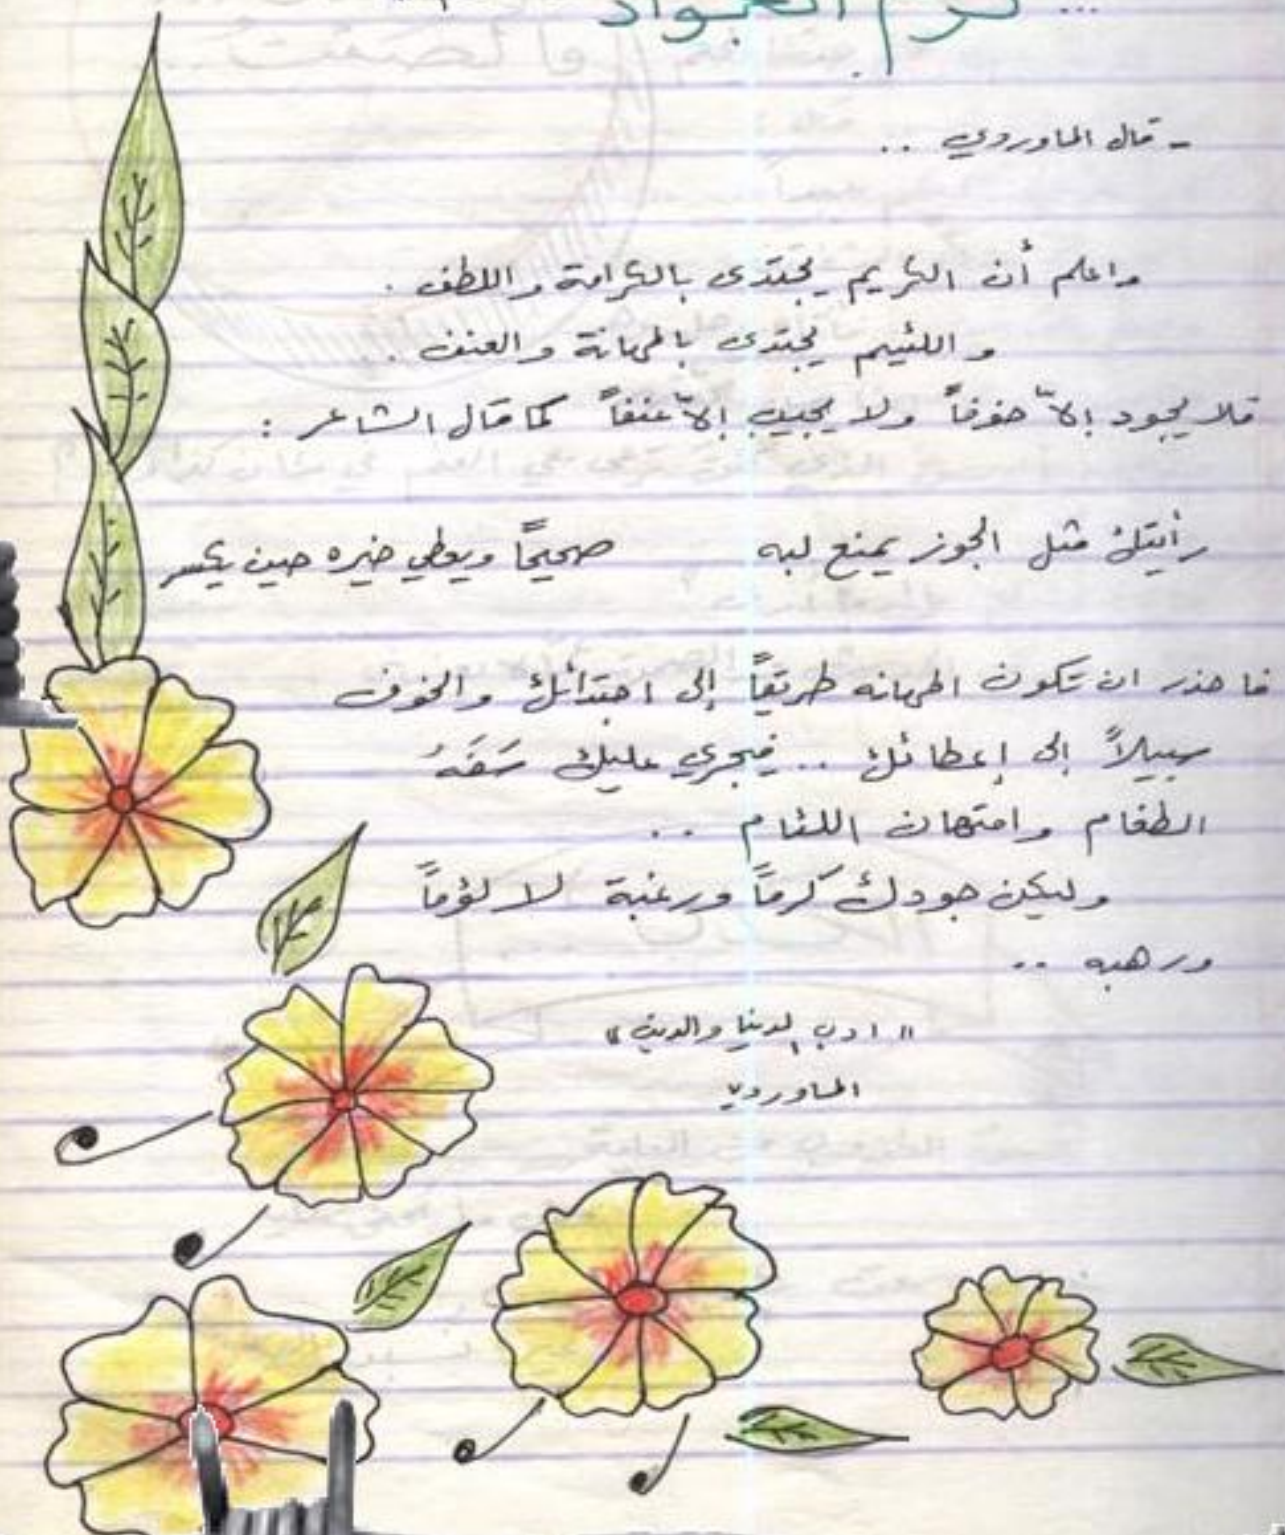 ... كرم الجواد
- قال الماوردي ..
واعلم أن الكريم يجتدى بالكرامة واللطف .
واللئيم يجتدى بالمهانة والعنف ..
فلا يجود إلاّ خوفاً ولا يجيب إلاّ عنفاً كما قال الشاعر :
رأيتك مثل الجوز يمنع لبه صحيحاً ويعطي خيره حين يكسر
فاحذر ان تكون المهانه طريقاً إلى اجتدائك والخوف
سبيلاً إلى إعطائك .. فيجري عليك سَفَهُ
الطغام وامتهان اللئام ..
وليكن جودك كرماً ورغبة لا لؤماً
ورهبه ..
" ادب الدنيا والدين "
الماوردي